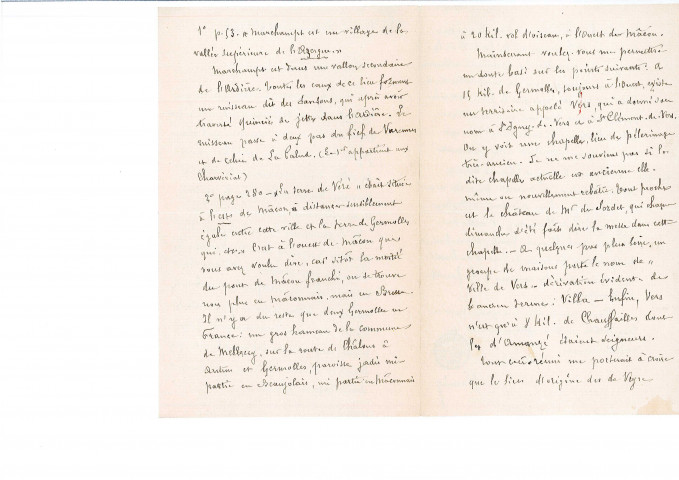 1° p. 53. « Marchampt est un village de la
vallée supérieure de l'Azergue. »
Marchampt est dans un vallon secondaire
de l'Ardière. Toutes les eaux de ce lieu forment
un ruisseau dit des Samsons, qui après avoir
traversé Quincié se jette dans l'Ardière. Ce
ruisseau passe à deux pas du fief de Varennes
et de celui de La Palud. (Le 1er appartient aux
Charvériat)
2° page 280 - « La terre de Vers » était située
à l'est de Mâcon, à distance sensiblement
égale entre cette ville et la terre de Germolles
qui, etc. » C'est à l'ouest de Mâcon que
vous avez voulu dire, car sitôt la moitié
du pont de Mâcon franchi, on se trouve
non plus en mâconnais, mais en Bresse.
Il n'y a du reste que deux Germolles en
France : un gros hameau de la commune
de Mellecey, sur la route de Châlons à
Autun et Germolles, paroisse jadis mi
partie en Beaujolais, mi partie en Mâconnais
à 20 Kil. vol d'oiseau, à l'Ouest de Mâcon.
Maintenant voulez-vous me permettre
un doute basé sur les points suivants ? à
15 Kil. de Germolles, toujours à l'Ouest, existe
un territoire appelé Vers, qui a donné son
nom à St Igny-de-Vers et à St Clément-de-Vers.
On y voit une chapelle, lieu de pèlerinage
très ancien. Je ne me souviens pas si la
dite chapelle actuelle est ancienne elle-
même ou nouvellement rebâtie. Tout proche
est le château de Mr de Jordet, qui chaque
dimanche d'été fait dire la messe dans cette
chapelle. - A quelques pas plus loin, un
groupe de maisons porte le nom de «
Ville de Vers » dérivation évidente de
l'ancien terme : Villa - Enfin, Vers
n'est qu'à 8 Kil. de Chauffailles dont
les d'Amanzé étaient seigneurs.
Tout ceci réuni me porterait à croire
que le lieu d'origine des de Veyre